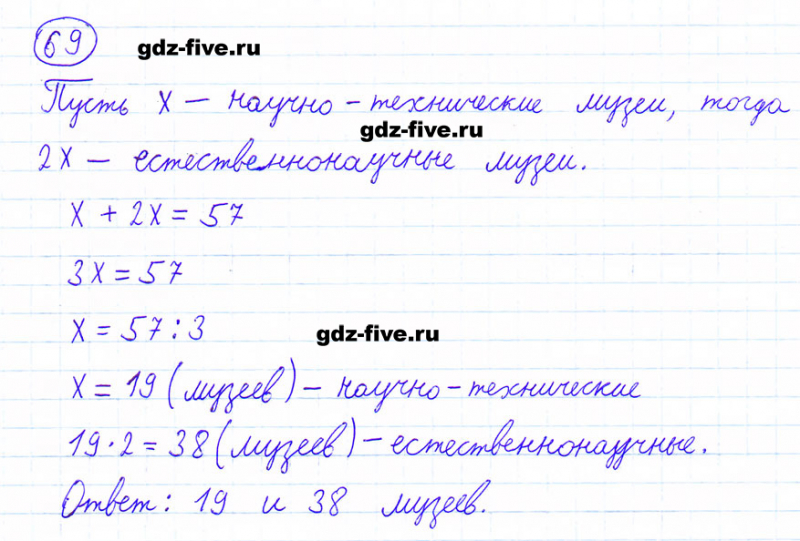 69 gdz-five.ru
Пусть х – научно-технические музеи, тогда
gdz-five.ru
2х – естественнонаучные музеи.
х + 2х = 57
3х = 57
х = 57 : 3
gdz-five.ru
х = 19 (музеев) – научно-технические
19 · 2 = 38 (музеев) – естественнонаучные.
Ответ: 19 и 38 музеев.